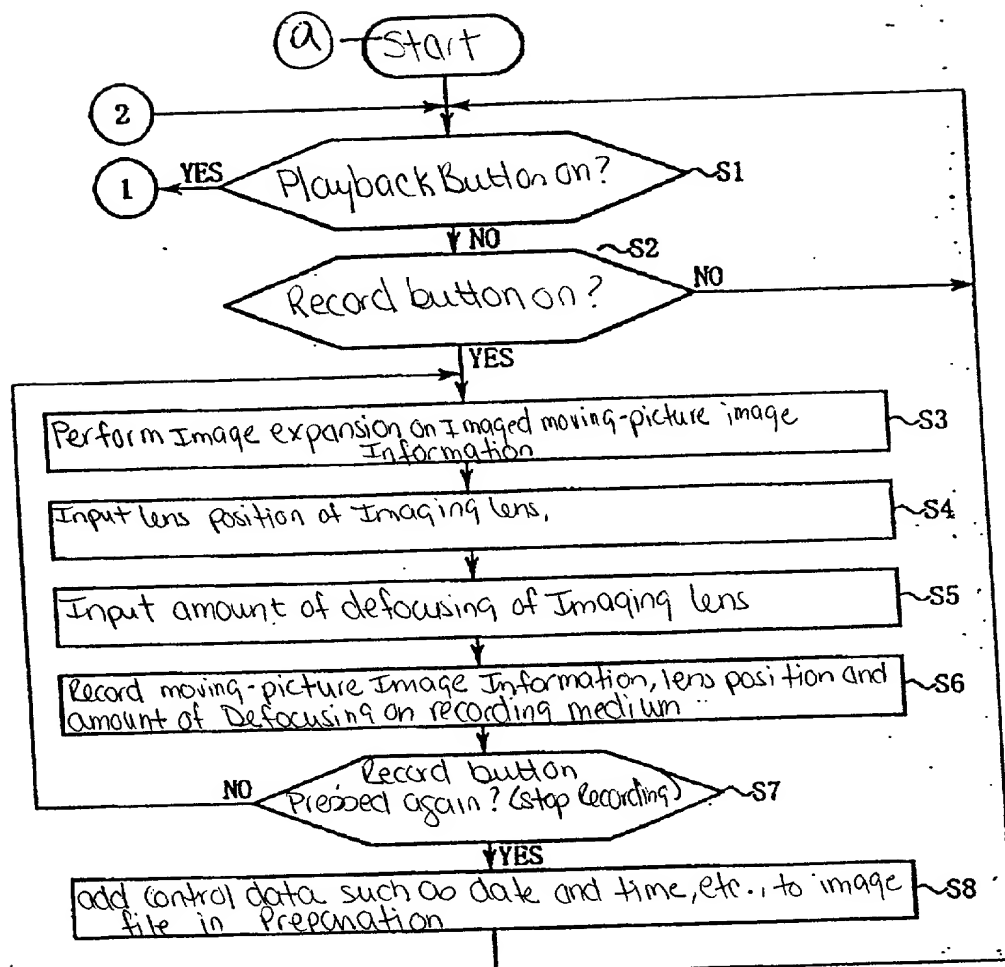 a
Start
2
1
YES
Playback Button on?
S1
NO
S2
Record button on?
NO
YES
Perform Image expansion on Imaged moving-picture image
Information
S3
Input lens position of Imaging lens,
S4
Input amount of defocusing of Imaging lens
S5
Record moving-picture Image Information, lens position and
amount of Defocusing on recording medium
S6
Record button
Pressed again? (stop Recording)
NO
S7
YES
add control data such as date and time, etc., to image
file in Prepanation
S8